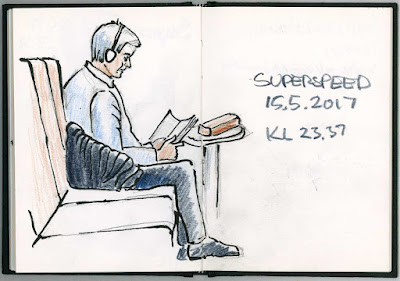 SUPERSPEED
15.5.2017
KL 23.37